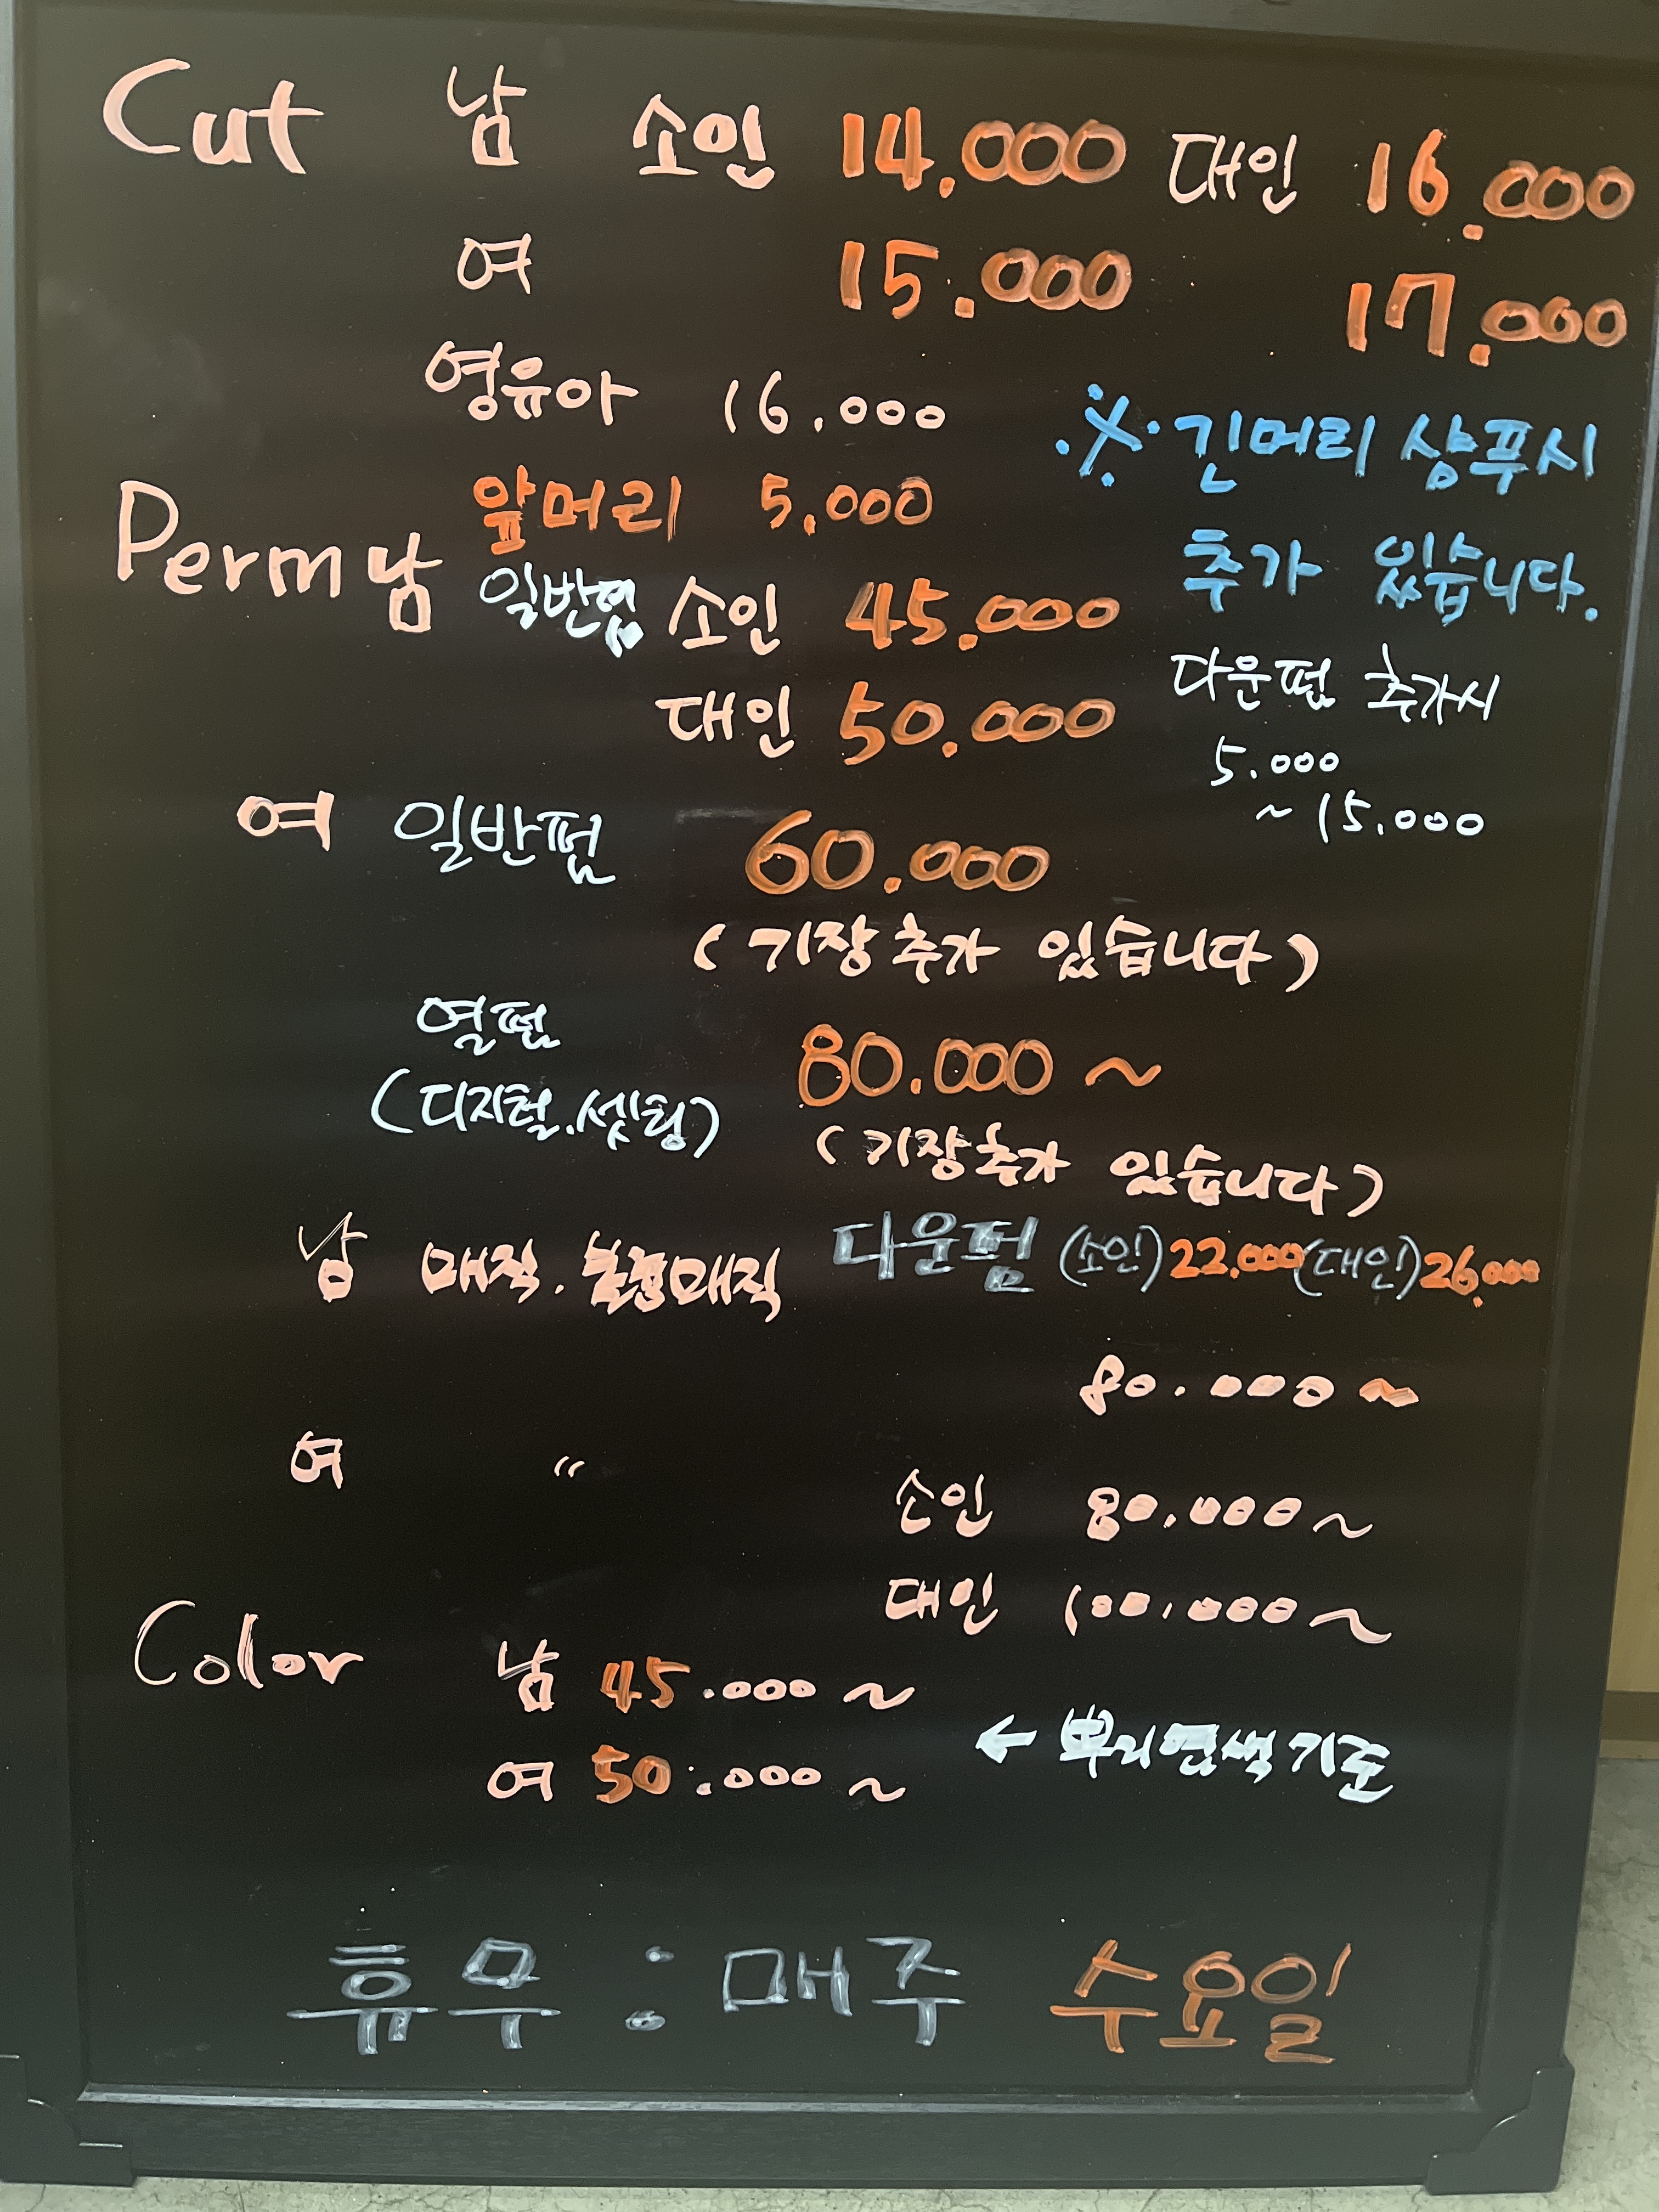 Cut 남 소인 14.000 대인 16.000
여 15.000 17.000
영유아 16.000
※ 긴머리 샴푸시
앞머리 5.000
추가 있습니다.
Perm 남 일반펌 소인 45.000
대인 50.000
다운펌 추가시
5.000
~15.000
여 일반펌 60.000
(기장추가 있습니다)
열펌 80.000 ~
(디지털.셋팅)
(기장추가 있습니다)
남 매직. 볼륨매직 다운펌 (소인)22.000(대인)26.000
80.000~
여 〃 소인 80.000~
대인 100.000~
Color 남 45.000 ~
여 50.000 ~
← 뿌리염색기준
휴무 : 매주 수요일